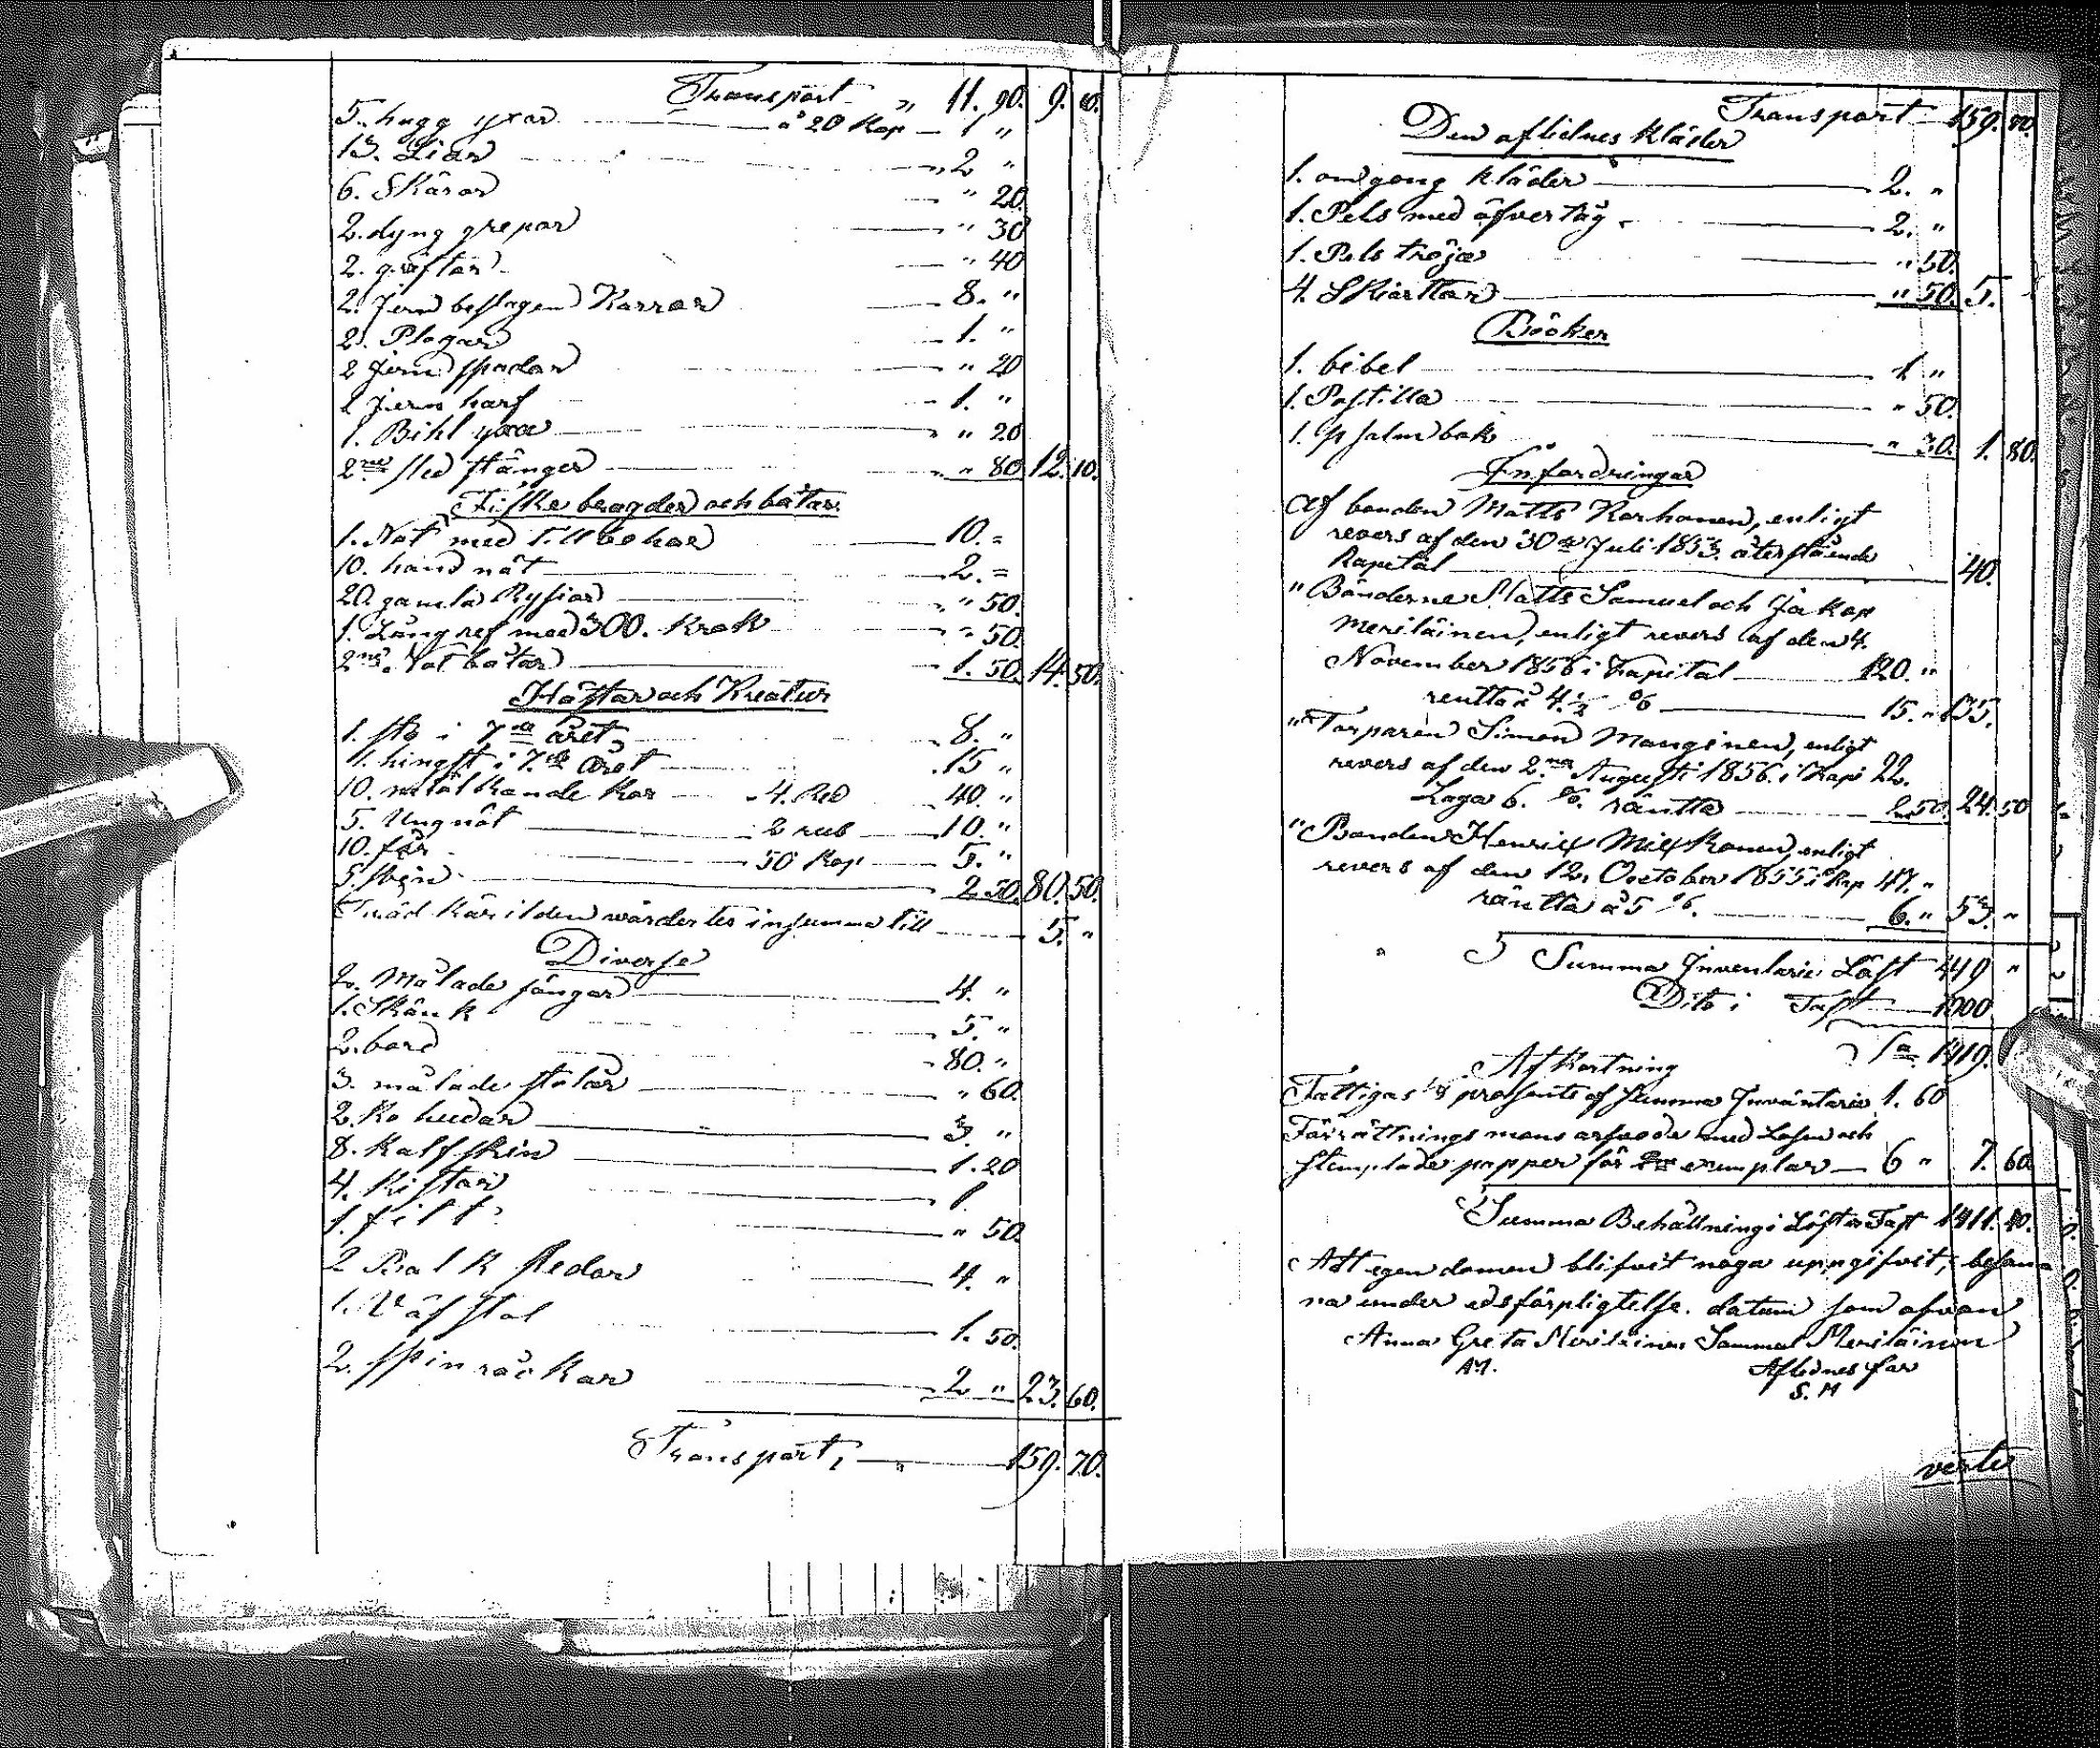 Transport " 11. 90. 9. 10.
5. hugg yxar à 20 Kop 1 "
13. Liar " 2 "
6. Skäror " 20.
2. dyng grepar " 30
2. gräftar " 40
2. Jern beslagen Karror 8. "
2. Plogar 1. "
2 Jern spadar " 20
2 Jern harf 1. "
1. Bihl yxa " 20
2ne sled stänger " 80 12. 10.
Fiske bragder och båtar.
1. Not med Tillbehör 10. =
10. hand nät 2. =
20. gamla Rysior " 50.
1. Lång ref med 300. krok " 50.
2ne. Not båtar 1. 50. 14. 50.
Hästar och Kreatur
1. sto i 7de året 8. "
1. hingst i 7.de året 15 "
10. mjölkande kor 4. Rub 40. "
5. Ungnöt 2 rub 10. "
10. får 50 Kop 5. "
5. svin 2 50. 80. 50.
Träd kärilden värdertes in summa till 5. "
Diverse
2. Målade sängar 4. "
1. Skänk 5. "
2. bord 80. "
3. målade stolar " 60.
2. Ko hudar 3. "
8. kalfskin 1. 20
4. kistor 1.
1. filt " 50.
2 Balk sledar 4. "
1. Väfstol 1. 50.
2. spinråckar 2 " 23. 60.
Transport, " 159. 70.
Transport 159. 70.
Den aflidnes kläder
1. omgong kläder 2. "
1. Pels med öfvertäg 2. "
1. Pels tröja " 50.
4. Skiorttor " 50. 5.
Böcker
1. bibel 1 "
1. Postilla " 50.
1. psalmbok " 30. 1. 80.
Infordringar
Af bonden Matts Korhonen, enligt
revers af den 30de Juli 1853. återstående
kapital 40.
" Bönderne Matts Samuel och Jakop
Meriläinen, enligt revers af den 4.
November 1856 i kapital 120. "
rentta à 4.½ % 15. " 135.
" Torparen Simon Manginen, enligt
revers af den 2.na Augusti 1856. i Kapi 22.
Laga 6. %. räntta 2.50. 24. 50
" Bonden Henrik enligt
revers af den 12. October 1855 i Kap 47. "
räntta à 5 %. 6. " 53. "
Summa Inventarie Löst 419 "
Dito i Fast 1000
Sa. 1419.
Afkortning
Fattigas ⅛ prosents af Summa Inväntarie 1. 60
Förrättnings mans arfvode med Losen och
stemplade papper för exemplar 6 " 7. 60
Summa Behållning i Löst o Fast 1411. 40.
Att egendomen blifvit noga uppgifvit, besan-
na under edsförpligtelse. datum som ofvan
Anna Greta Meriläinen Sammel Meriläinen
A.M. Aflednes far
S. M
verte